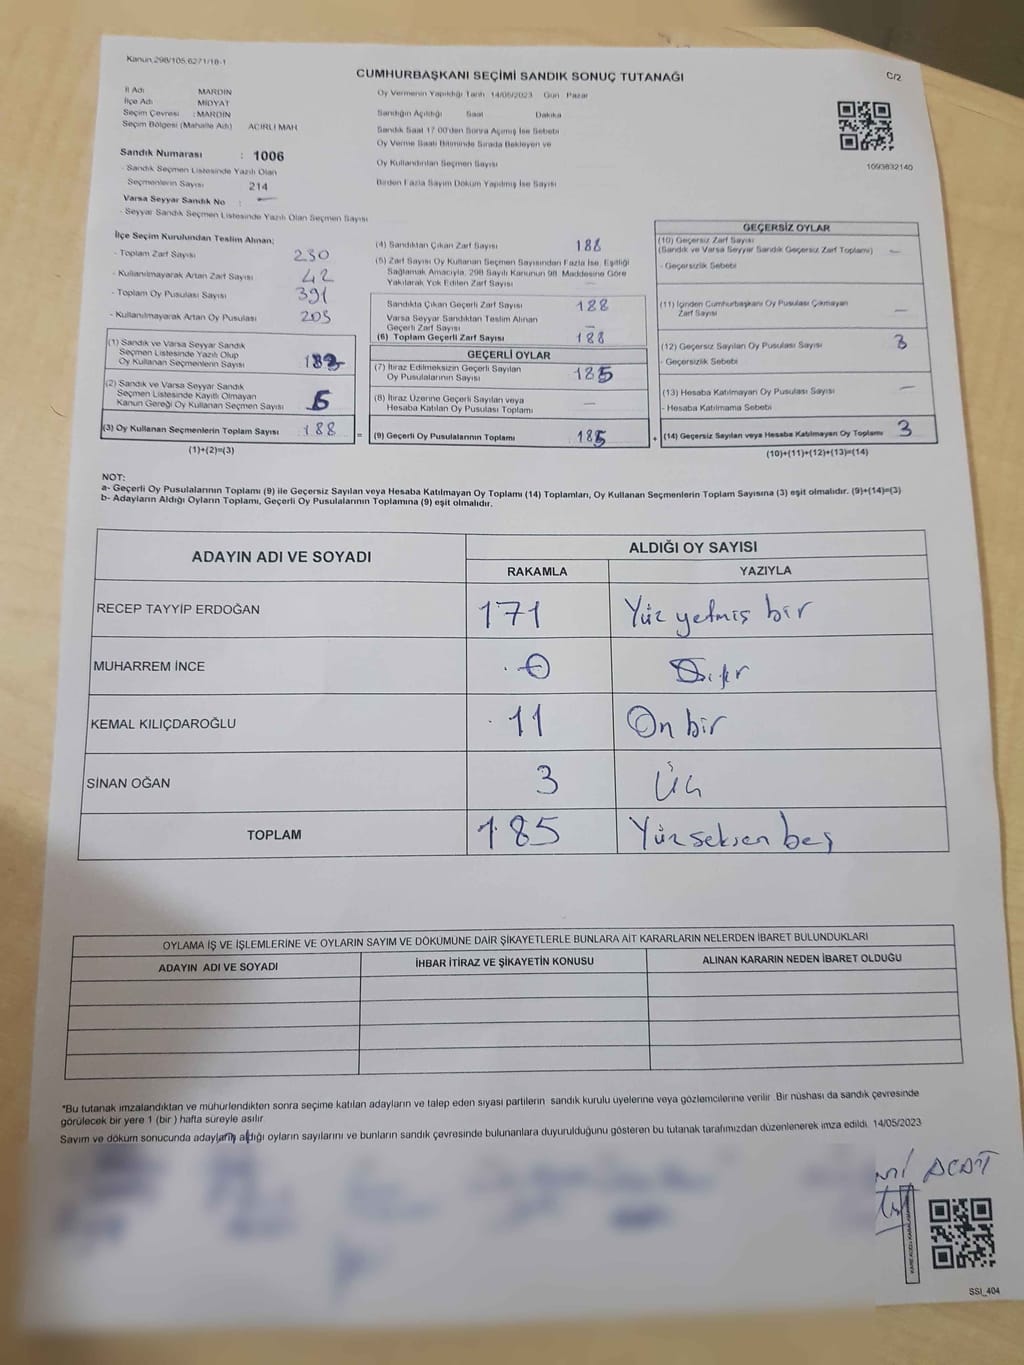 Kanun 298/105,6271/18-1
CUMHURBAŞKANI SEÇİMİ SANDIK SONUÇ TUTANAĞI
C/2
İl Adı MARDİN
İlçe Adı MİDYAT
Seçim Çevresi : MARDİN
Seçim Bölgesi (Mahalle Adı) ACIRLI MAH
Oy Vermenin Yapıldığı Tarih 14/05/2023 Gün Pazar
Sandığın Açıldığı Saat Dakika
Sandık Saat 17.00'den Sonra Açılmış İse Sebebi
Oy Verme Saati Bitiminde Sırada Bekleyen ve
Oy Kullandırılan Seçmen Sayısı
Birden Fazla Sayım Döküm Yapılmış İse Sayısı
1093832140
Sandık Numarası : 1006
- Sandık Seçmen Listesinde Yazılı Olan
Seçmenlerin Sayısı 214
Varsa Seyyar Sandık No : —
- Seyyar Sandık Seçmen Listesinde Yazılı Olan Seçmen Sayısı
İlçe Seçim Kurulundan Teslim Alınan;
- Toplam Zarf Sayısı 230
- Kullanılmayarak Artan Zarf Sayısı 42
- Toplam Oy Pusulası Sayısı 391
- Kullanılmayarak Artan Oy Pusulası 203
(1) Sandık ve Varsa Seyyar Sandık
Seçmen Listesinde Yazılı Olup
Oy Kullanan Seçmenlerin Sayısı
(2) Sandık ve Varsa Seyyar Sandık
Seçmen Listesinde Kayıtlı Olmayan
Kanun Gereği Oy Kullanan Seçmen Sayısı
(3) Oy Kullanan Seçmenlerin Toplam Sayısı 188
(1)+(2)=(3)
(4) Sandıktan Çıkan Zarf Sayısı 188
(5) Zarf Sayısı Oy Kullanan Seçmen Sayısından Fazla İse, Eşitliği
Sağlamak Amacıyla, 298 Sayılı Kanunun 98. Maddesine Göre
Yakılarak Yok Edilen Zarf Sayısı —
Sandıkta Çıkan Geçerli Zarf Sayısı 188
Varsa Seyyar Sandıktan Teslim Alınan
Geçerli Zarf Sayısı —
(6) Toplam Geçerli Zarf Sayısı 188
GEÇERLİ OYLAR
(7) İtiraz Edilmeksizin Geçerli Sayılan
Oy Pusulalarının Sayısı 185
(8) İtiraz Üzerine Geçerli Sayılan veya
Hesaba Katılan Oy Pusulası Toplamı —
= (9) Geçerli Oy Pusulalarının Toplamı 185
GEÇERSİZ OYLAR
(10) Geçersiz Zarf Sayısı
(Sandık ve Varsa Seyyar Sandık Geçersiz Zarf Toplamı) —
- Geçersizlik Sebebi
(11) İçinden Cumhurbaşkanı Oy Pusulası Çıkmayan
Zarf Sayısı —
(12) Geçersiz Sayılan Oy Pusulası Sayısı 3
- Geçersizlik Sebebi
(13) Hesaba Katılmayan Oy Pusulası Sayısı —
- Hesaba Katılmama Sebebi
+ (14) Geçersiz Sayılan veya Hesaba Katılmayan Oy Toplamı 3
(10)+(11)+(12)+(13)=(14)
NOT:
a- Geçerli Oy Pusulalarının Toplamı (9) ile Geçersiz Sayılan veya Hesaba Katılmayan Oy Toplamı (14) Toplamları, Oy Kullanan Seçmenlerin Toplam Sayısına (3) eşit olmalıdır. (9)+(14)=(3)
b- Adayların Aldığı Oyların Toplamı, Geçerli Oy Pusulalarının Toplamına (9) eşit olmalıdır.
ADAYIN ADI VE SOYADI ALDIĞI OY SAYISI
RAKAMLA YAZIYLA
RECEP TAYYİP ERDOĞAN 171 Yüz yetmiş bir
MUHARREM İNCE 0 Sıfır
KEMAL KILIÇDAROĞLU 11 On bir
SİNAN OĞAN 3 Üç
TOPLAM 185 Yüz seksen beş
OYLAMA İŞ VE İŞLEMLERİNE VE OYLARIN SAYIM VE DÖKÜMÜNE DAİR ŞİKAYETLERLE BUNLARA AİT KARARLARIN NELERDEN İBARET BULUNDUKLARI
ADAYIN ADI VE SOYADI İHBAR İTİRAZ VE ŞİKAYETİN KONUSU ALINAN KARARIN NEDEN İBARET OLDUĞU
*Bu tutanak imzalandıktan ve mühürlendikten sonra seçime katılan adayların ve talep eden siyasi partilerin sandık kurulu üyelerine veya gözlemcilerine verilir. Bir nüshası da sandık çevresinde
görülecek bir yere 1 (bir) hafta süreyle asılır.
Sayım ve döküm sonucunda adayların aldığı oyların sayılarını ve bunların sandık çevresinde bulunanlara duyurulduğunu gösteren bu tutanak tarafımızdan düzenlenerek imza edildi. 14/05/2023
ACAT
SSI_404